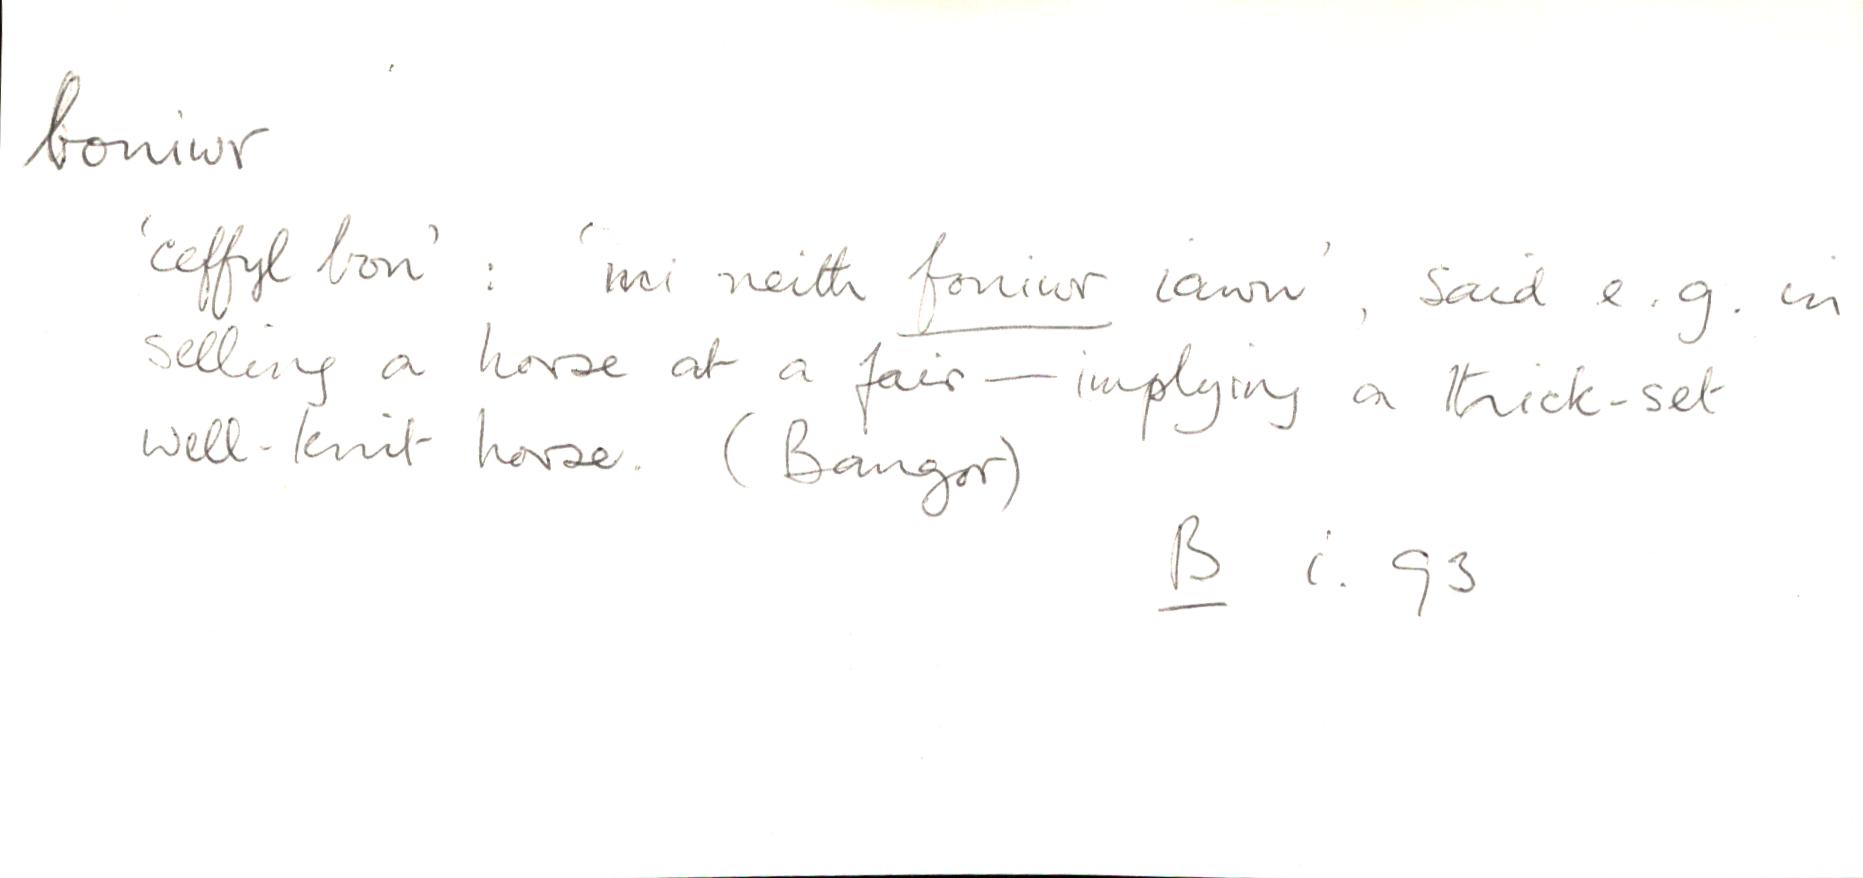 boniwr
'ceffyl bon' : 'mi neith foniwr iawn', said e.g. in
selling a horse at a fair — implying a thick-set
well-knit horse. (Bangor)
B i. 93